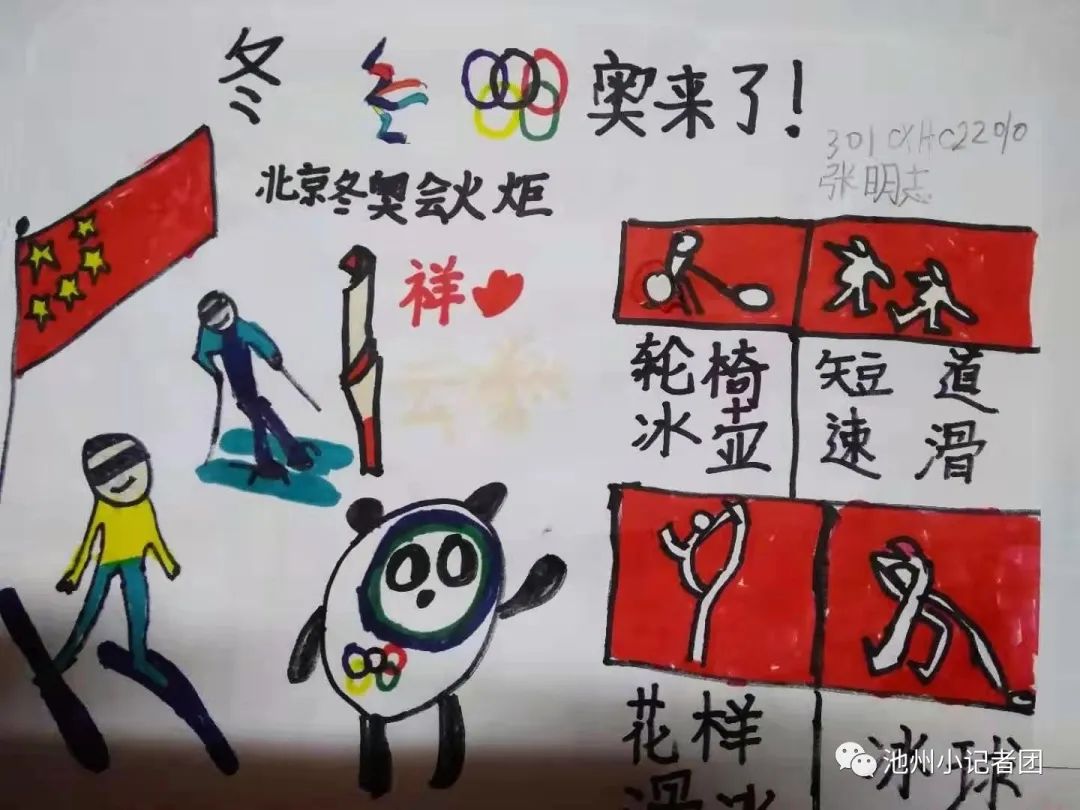 冬 奥来了!
301 CXHC2290
张明志
北京冬奥会火炬
祥
云
轮椅
冰壶
短道
速滑
花样
滑冰
冰球
池州小记者团